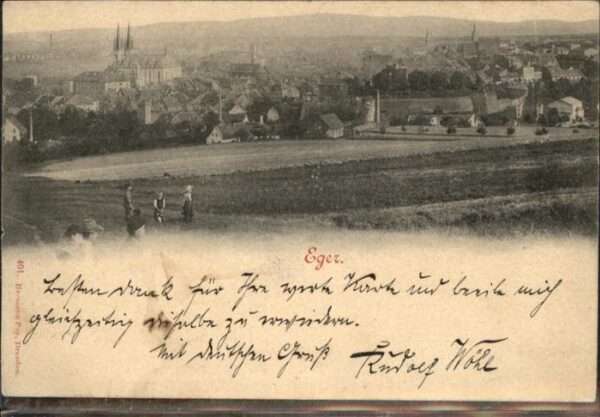 Eger.
461. Hermann Poy, Dresden.
Besten Dank für Ihre werte Karte und beeile mich
gleichzeitig dieselbe zu erwidern.
Mit deutschen Gruß
Rudolf Wöhl